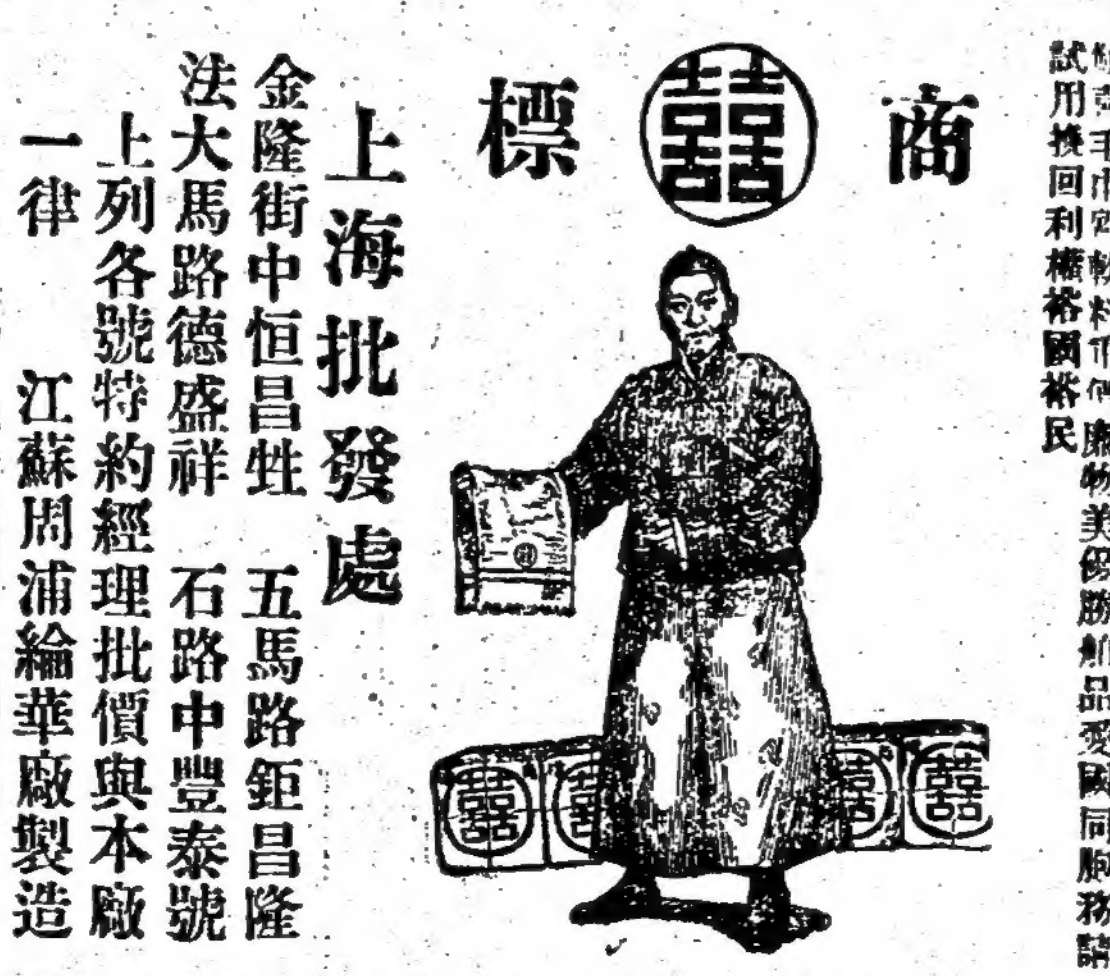 喜毛巾質軟料帀價廉物美優勝舶品愛國同胞務請
試用挽回利權裕國裕民
商 囍 標
上海批發處
金隆街中恒昌甡 五馬路鉅昌隆
法大馬路德盛祥 石路中豐泰號
上列各號特約經理批價與本廠
一律 江蘇周浦綸華廠製造
囍 囍 囍 囍